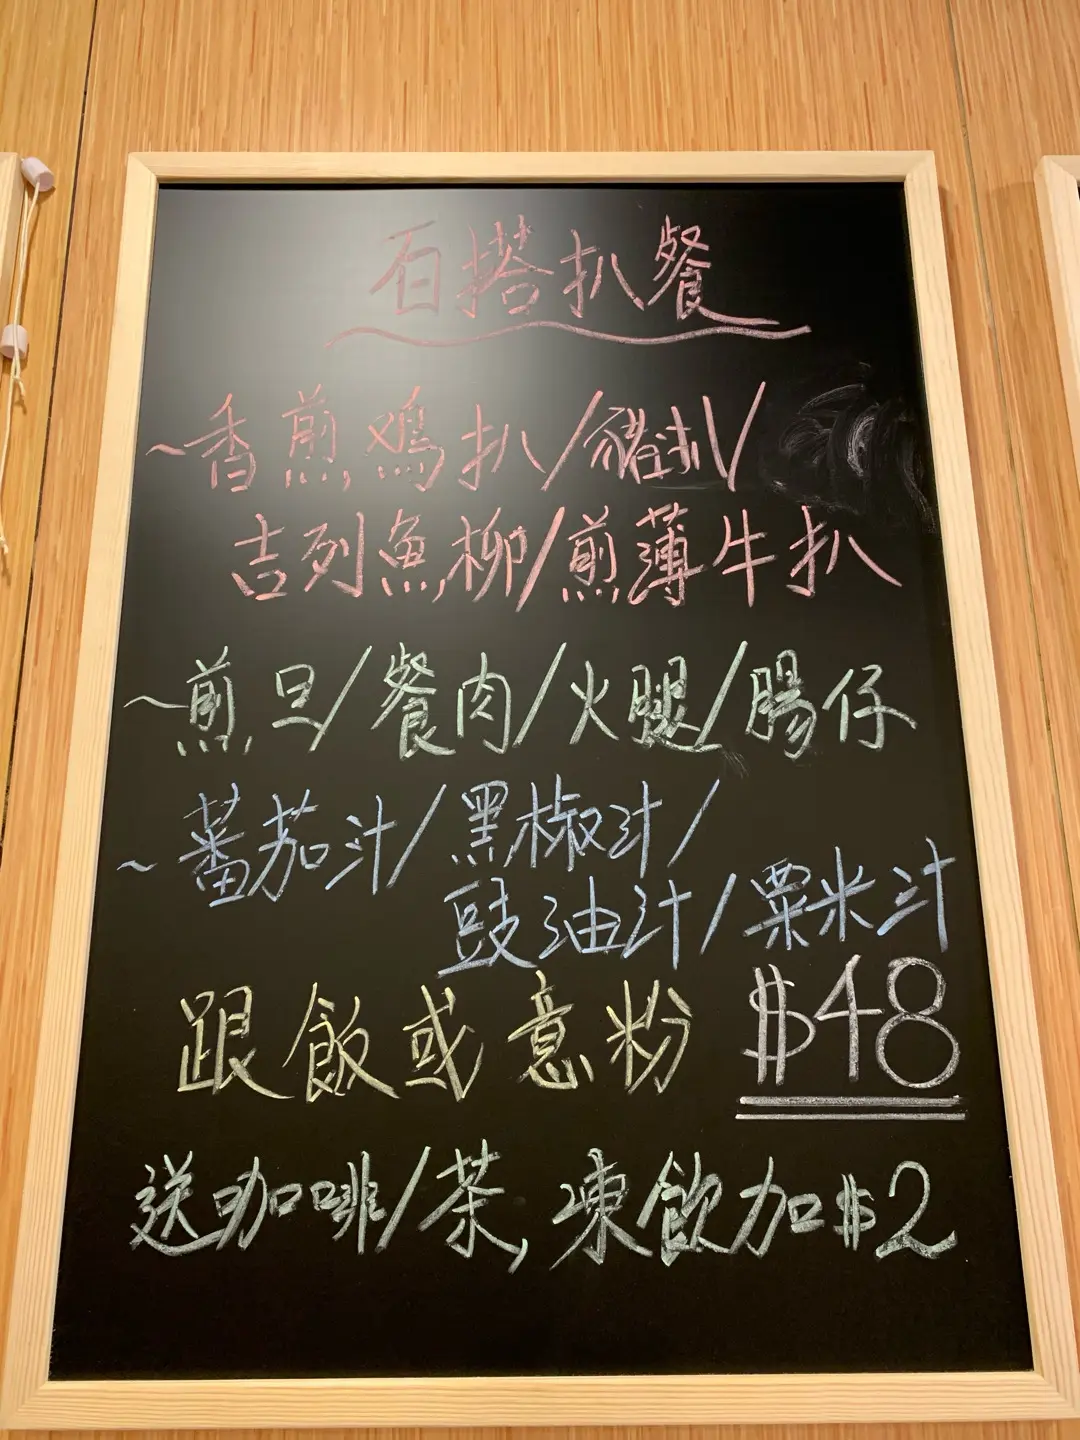 百搭扒餐
~香煎鸡扒/豬扒/
吉列魚柳/煎薄牛扒
~煎旦/餐肉/火腿/腸仔
~蕃茄汁/黑椒汁/
豉油汁/粟米汁
跟飯或意粉 $48
送咖啡/茶,凍飲加$2